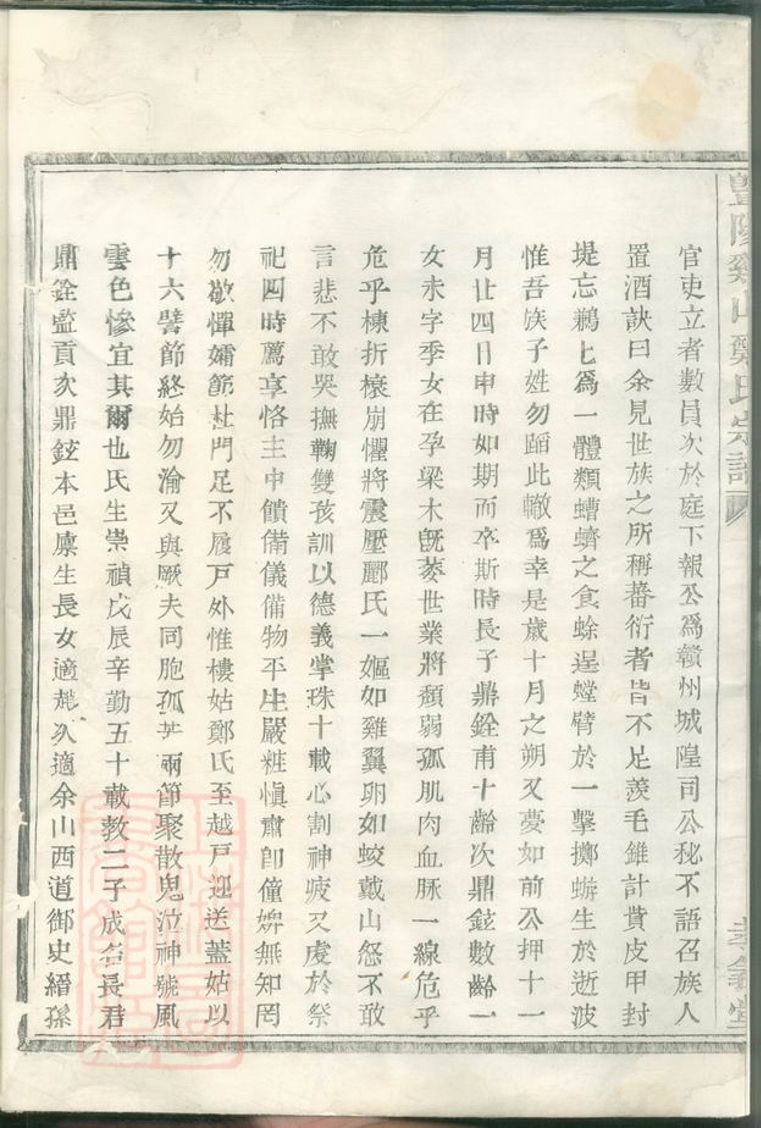 暨陽奚山鄭氏宗譜
孝翕堂
官吏立者數員次於庭下報公爲贛州城隍司公秘不語召族人
置酒訣曰余見世族之所稱蕃衍者皆不足羨毛錐計貲皮甲封
堤忘鵜匕爲一體類螬蠐之食蜍逞螳臂於一擊擲蝣生於逝波
惟吾族子姓勿蹈此轍爲幸是歲十月之朔又夢如前公押十一
月廿四日申時如期而卒斯時長子鼎銓甫十齡次鼎鉉數齡一
女未字季女在孕梁木旣萎世業將頹弱孤肌肉血脉一線危乎
危乎棟折榱崩懼將震壓酈氏一嫗如雞翼卵如蛟戴山怒不敢
言悲不敢哭撫鞠雙孩訓以德義掌珠十載心割神疲又虔於祭
祀四時薦享恪主中饋備儀備物平生嚴粧愼肅卽僮婢無知罔
勿欽憚孀節杜門足不履戸外惟樓姑鄭氏至越戸迎送蓋姑以
十六誓節終始勿渝又與厥夫同胞孤㷀兩節聚散鬼泣神號風
雲色慘宜其爾也氏生崇禎戊辰辛勤五十載教二子成名長君
鼎銓監貢次鼎鉉本邑廪生長女適 次適余山西道御史縉孫